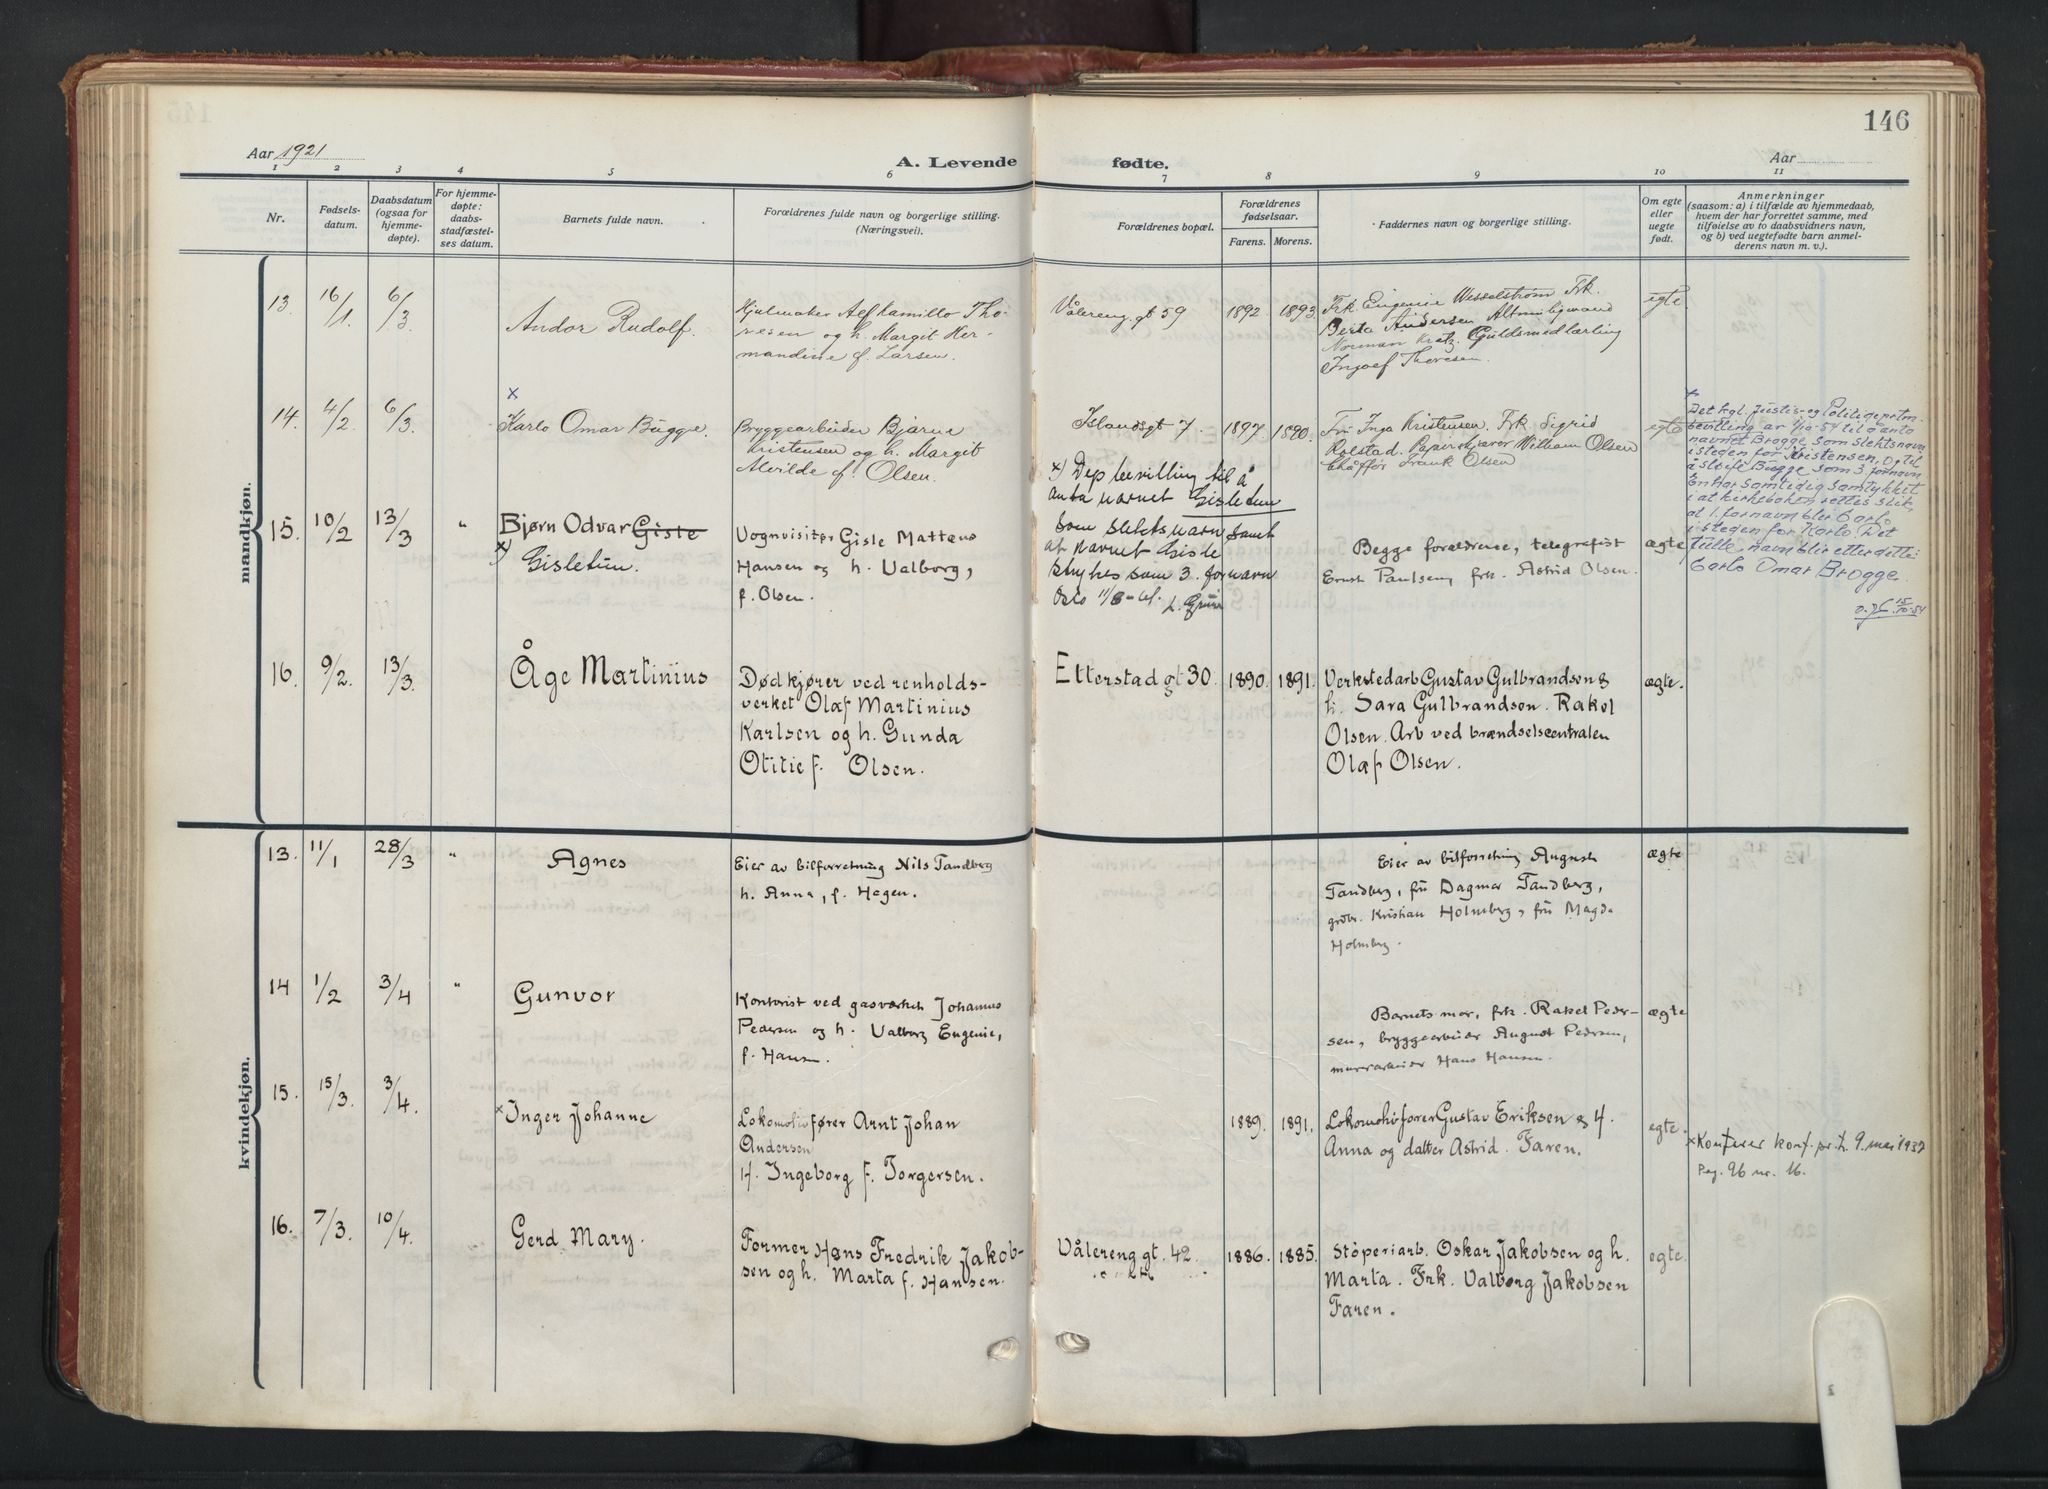 146
Aar 1921
A. Levende
fødte.
Aar
1 2 3 4 5 6 7 8 9 10 11
Nr.
Fødsels-
datum.
Daabsdatum
(ogsaa for
hjemme-
døpte).
For hjemme-
døpte:
daabs-
stadfæstel-
ses datum.
Barnets fulde navn.
Forældrenes fulde navn og borgerlige stilling.
(Næringsvei).
Forældrenes bopæl.
Forældrenes
fødselsaar.
Farens. Morens.
Faddernes navn og borgerlige stilling.
Om egte
eller
uegte
født.
Anmerkninger
(saasom: a) i tilfælde av hjemmedaab,
hvem der har forrettet samme, med
tilføielse av to daabsvidners navn,
og b) ved uegtefødte barn anmel-
derens navn m. v.).
mandkjøn.
13. 16/1. 6/3
Andor Rudolf.
Hjulmaker Alf Kamillo Tho-
resen og h. Margit Her-
mandine f. Larsen.
Vålereng. gt 59
1892. 1893.
Frk. Eugenie Wesselstrøm Frk.
Berta Andersen
Norman Guldsmedlærling
Ingolf Thoresen.
egte
14. 4/2. 6/3.
x
Karlo Omar Bügge.
Bryggearbeider Bjarne
Kristensen og h. Margit
Alvilde f. Olsen.
Islandsgt 7.
1897. 1890.
Frü Inga Kristensen. Frk. Sigrid
Rolstad. William Olsen
Frank Olsen
egte
x
Det kgl. Justis- og Politideprtm.
bevilling av 7/10-54 til å anta
navnet Brogge, som slektsnavn
isteden for Kristensen, og til
å sløife Bugge som 3. fornavn.
En har samtidig samtykket
i at kirkeboken rettes slik,
at 1. fornavn blir Carlo
isteden for Karlo. Det
fulle navn blir etter dette:
Carlo Omar Brogge.
15/10-54
x) Dep bevilling til å
anta navnet Gisletun
som slektsnavn samt
at navnet Gisle
strykes som 3. fornavn
Oslo 11/8-
15. 10/2 13/3 "
Bjørn Odvar Gisle
x) Gisletün.
Vognvisitør Gisle Matteus
Hansen og h. Valborg,
f. Olsen.
Begge forældrene, telegrafist
Ernst Paulsen, frk. Astrid Olsen.
ægte
16. 9/2. 13/3.
Åge Martinius
Dødkjører ved renholds-
verket Olaf Martinius
Karlsen og h. Gunda
Otitie f. Olsen.
Etterstad gt 30.
1890. 1891.
Verkstedarb Gustav Gulbrandsen &
h. Sara Gulbrandsen. Rakel
Olsen. Arb ved brændselscentralen
Olaf Olsen.
ægte.
kvindekjøn.
13. 11/1 28/3 "
Agnes
Eier av bilforretning Nils Tandberg
h. Anna, f. Hagen.
Eier av bilforretning August
Tandberg, frü Dagmar Tandberg,
grdbr. Kristian Holmberg, frü Magda
Holmberg.
ægte
14 1/2 3/4 "
Gunvor
Kontorist ved gasverket Johannes
Pedersen og h. Valborg Eugenie,
f. Hansen.
Barnets mor, frk. Rakel Peder-
sen, bryggearbeider August Pedersen,
murerarbeider Hans Hansen.
ægte
15. 15/3. 3/4.
x Inger Johanne
Lokomotivfører Arnt Johan
Andersen
H. Ingeborg f. Torgersen.
1889. 1891.
Lokomotivfører Gustav Eriksen & H.
Anna og datter Astrid. Faren.
egte.
x Konferer konf. pr. 9. mai 1937
Pag. 96 nr. 16.
16. 7/3. 10/4.
Gerd Mary.
Former Hans Fredrik Jakob-
sen og h. Marta f. Hansen.
Vålereng gt. 42.
1886. 1885.
Støperiarb. Oskar Jakobsen og h.
Marta. Frk. Valborg Jakobsen
Faren.
egte.